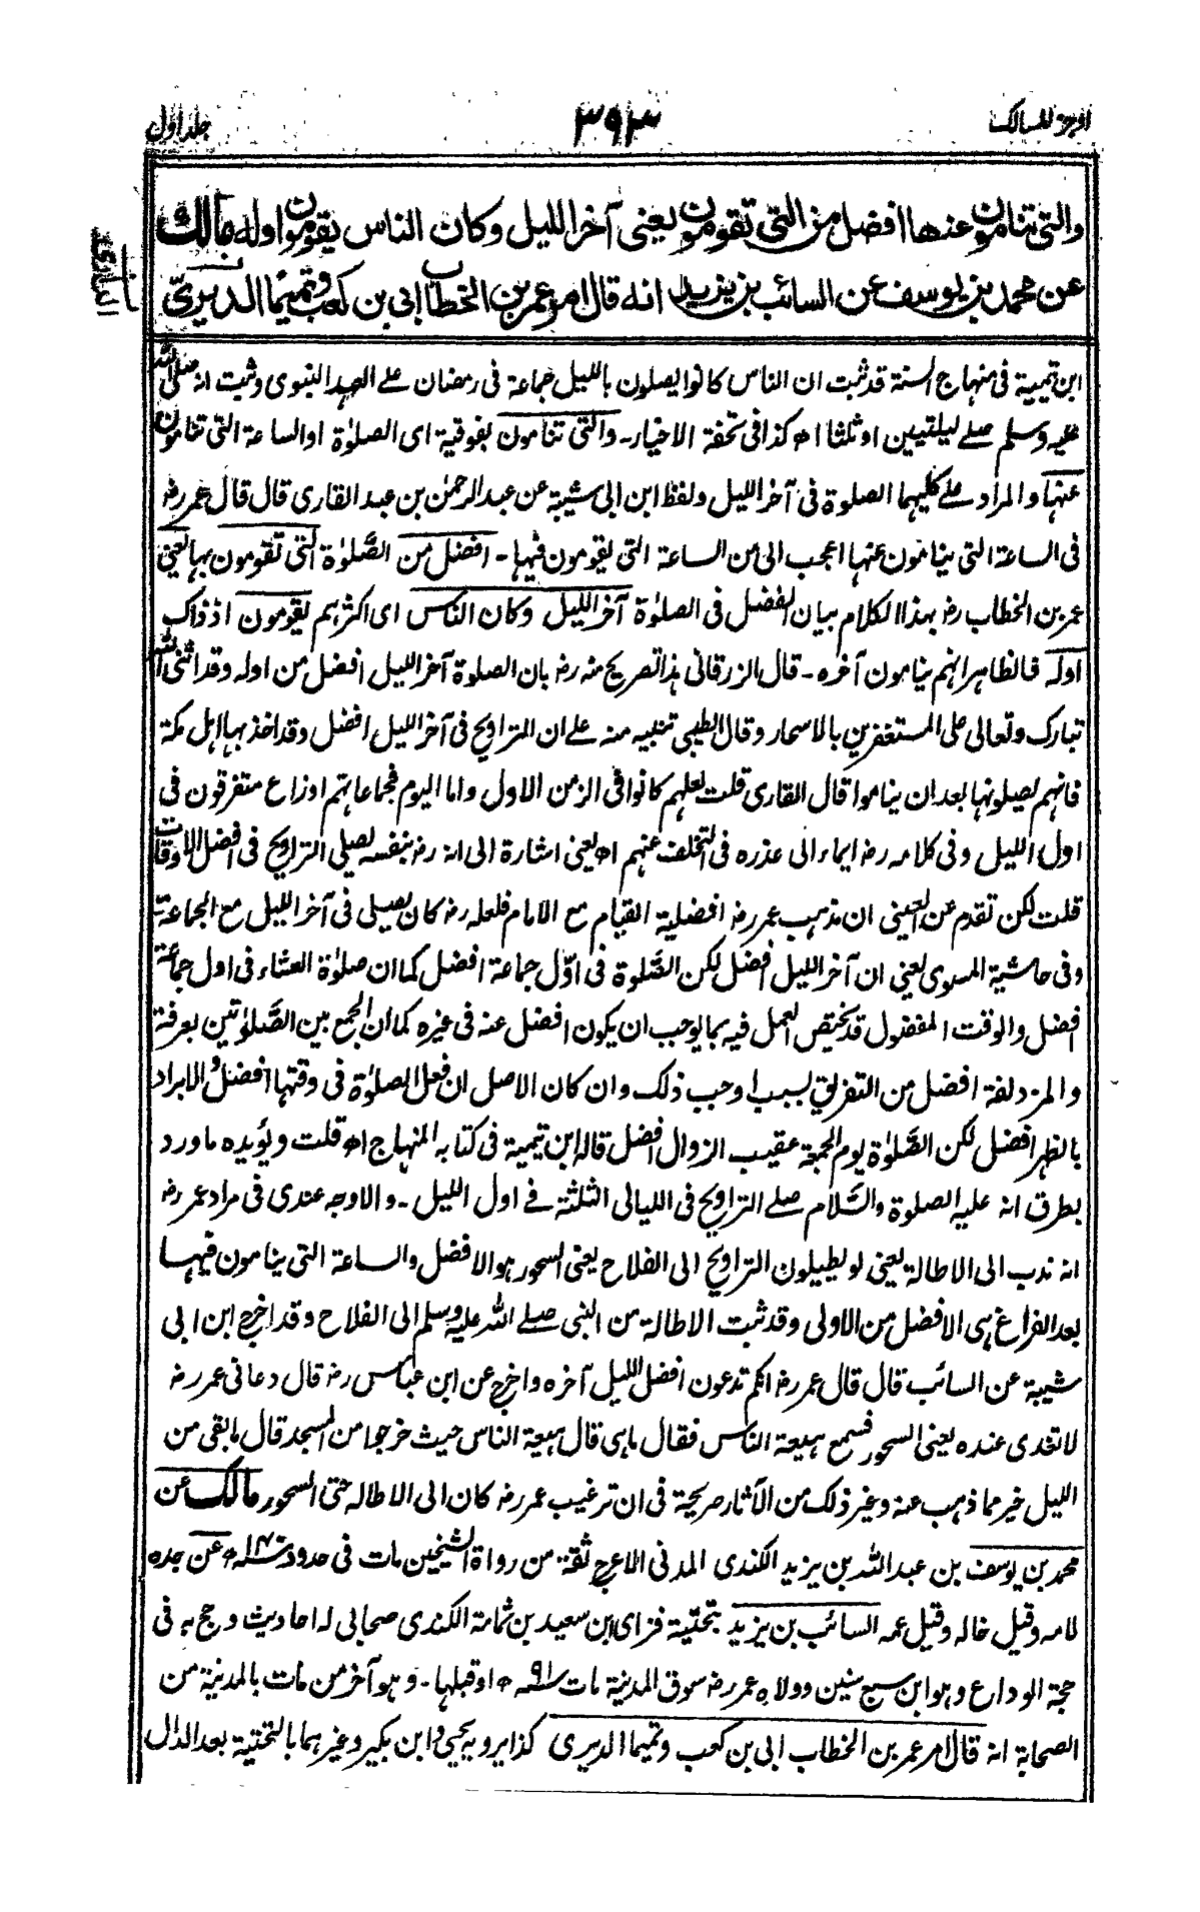 اوجز المسالك
٣٩٣
جلد اول
والتى تنامون عنها افضل من التى تقومون يعنى آخر الليل وكان الناس يقومون اوله مالك
عن محمد بن يوسف عن السائب بن يزيد انه قال امر عمر بن الخطاب ابى بن كعب وتميما الديرىّ
ابن تيمية فى منهاج السنة قد ثبت ان الناس كانوا يصلون بالليل جماعة فى رمضان على العهد النبوى وثبت انه صلى الله
عليه وسلم صلے ليلتين او ثلثا اھ كذا فى تحفة الاخيار۔ والتى تنامون بفوقية اى الصلوٰة او الساعة التى تنامون
عنها والمراد على كليهما الصلوة فى آخر الليل ولفظ ابن ابى شيبة عن عبد الرحمٰن بن عبد القارى قال قال عمر رضـ
فى الساعة التى ينامون عنها اعجب الى من الساعة التى يقومون فيها۔ افضل من الصَّلوٰة التى تقومون بها يعنى
عمر بن الخطاب رضـ بهذا الكلام بيان الفضل فى الصلوٰة آخر الليل وكان الناس اى اكثرهم يقومون اذ ذاك
اوله فالظاهر انهم ينامون آخره۔ قال الزرقانى هذا تصريح منه رضـ بان الصلوة آخر الليل افضل من اوله وقد اثنى الله
تبارك وتعالى على المستغفرين بالاسحار وقال الطيبى تنبيه منه على ان التراويح فى آخر الليل افضل وقد اخذ بها اهل مكة
فانهم يصلونها بعد ان يناموا قال القارى قلت لعلهم كانوا فى الزمن الاول واما اليوم فجماعاتهم اوزاع متفرقون فى
اول الليل وفى كلامه رضـ ايماء الى عذره فى التخلف عنهم اھ يعنى اشارة الى انه رضـ بنفسه يصلى التراويح فى افضل الاوقات
قلت لكن تقدم عن العينى ان مذهب عمر رضـ افضلية القيام مع الامام فلعله رضـ كان يصلى فى آخر الليل مع الجماعة
وفى حاشية المسوى يعنى ان آخر الليل افضل لكن الصَّلوة فى اوّل جماعة افضل كما ان صلوٰة العشاء فى اول جماعة
افضل والوقت المفضول قد يختص العمل فيه بما يوجب ان يكون افضل عنه فى غيره كما ان الجمع بين الصَّلوٰتين بعرفة
والمزدلفة افضل من التفريق بسبب اوجب ذلك وان كان الاصل ان فعل الصلوٰة فى وقتها افضل والابراد
بالظهر افضل لكن الصَّلوٰة يوم الجمعة عقيب الزوال افضل قاله ابن تيمية فى كتابه المنهاج اھ قلت ويؤيده ما ورد
بطرق انه عليه الصلوة والسَّلام صلے التراويح فى الليالى الثلثة فے اول الليل۔ والاوجه عندى فى مراد عمر رضـ
انه ندب الى الاطالة يعنى لو يطيلون التراويح الى الفلاح يعنى السحور هو الافضل والساعة التى ينامون فيها
بعد الفراغ هى الافضل من الاولى وقد ثبت الاطالة من النبى صلے الله عليه وسلم الى الفلاح وقد اخرج ابن ابى
شيبة عن السائب قال قال عمر رضـ انكم تدعون افضل الليل آخره واخرج عن ابن عباس رضـ قال دعانى عمر رضـ
لاتغدى عنده يعنى السحور فسمع هيعة الناس فقال ما هى قال هيعة الناس حيث خرجوا من المسجد قال ما بقى من
الليل خير مما ذهب عنه وغير ذلك من الآثار صريحة فى ان ترغيب عمر رضـ كان الى الاطالة حتى السحور مالك عن
محمد بن يوسف بن عبد الله بن يزيد الكندى المدنى الاعرج ثقة من رواة الشيخين مات فى حدود سنة ١٤٠ھ عن جده
لامه وقيل خاله وقيل عمه السائب بن يزيد بتحتية فزاى ابن سعيد بن ثمامة الكندى صحابى له احاديث وحج به فى
حجة الوداع وهو ابن سبع سنين وولاه عمر رضـ سوق المدينة مات سنة ٩١ھ او قبلها۔ وهو آخر من مات بالمدينة من
الصحابة انه قال امر عمر بن الخطاب ابى بن كعب وتميما الديرى كذا يرويه يحيى وابن بكير وغيرهما بالتحتية بعد الدال